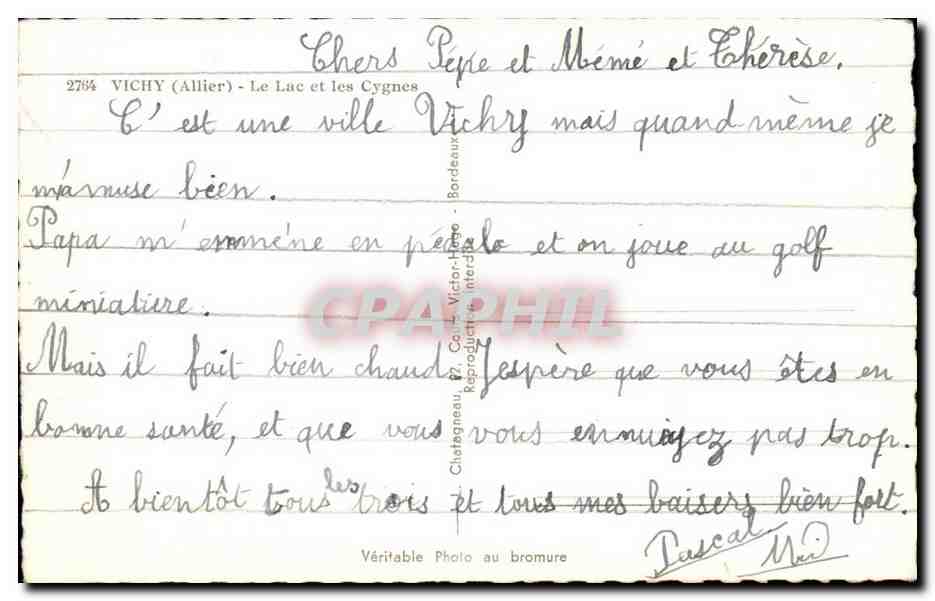 Chers Pépe et Mémé et Thérèse.
2764 VICHY (Allier) - Le Lac et les Cygnes
C' est une ville Vichy mais quand-mème je
m'amuse bien.
Papa m' emméne en pédalo et on joue au golf
miniature.
Mais il fait bien chaud. J'espère que vous êtes en
bonne santé, et que vous vous ennuiyez pas trop.
A bientôt tous les trois et tous mes baisers bien fort.
Pascal
Chatagneau, 97, Cours Victor-Hugo - Bordeaux
Reproduction interdite
CPAPHIL
Véritable Photo au bromure